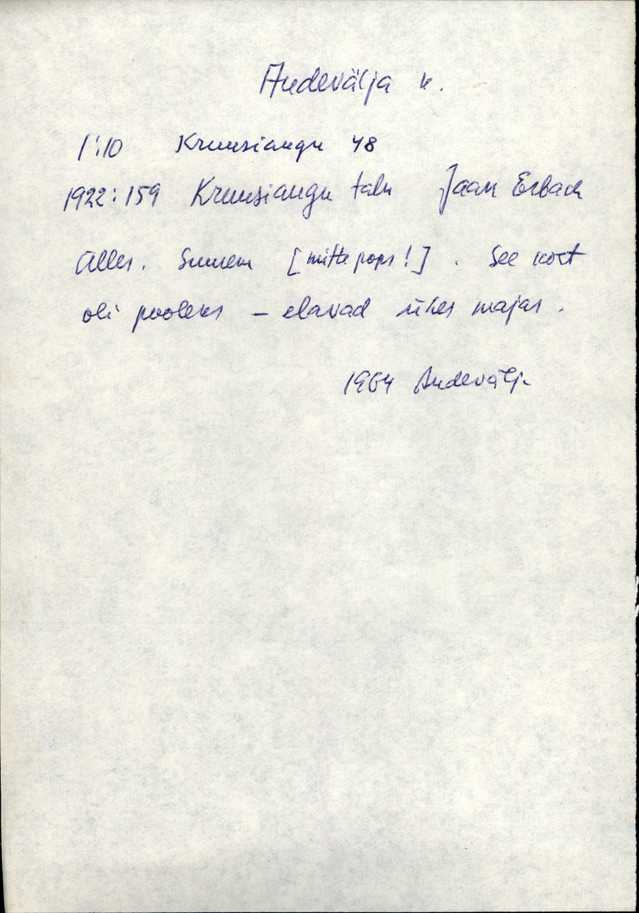 Andevälja k.
1:10 Kruusiangu 48
1922:159 Kruusiangu talu Jaan Erbach
Alles. Suurem [mitte pops!]. See koht
oli pooleks – elavad ühes majas.
1964 Andevälja